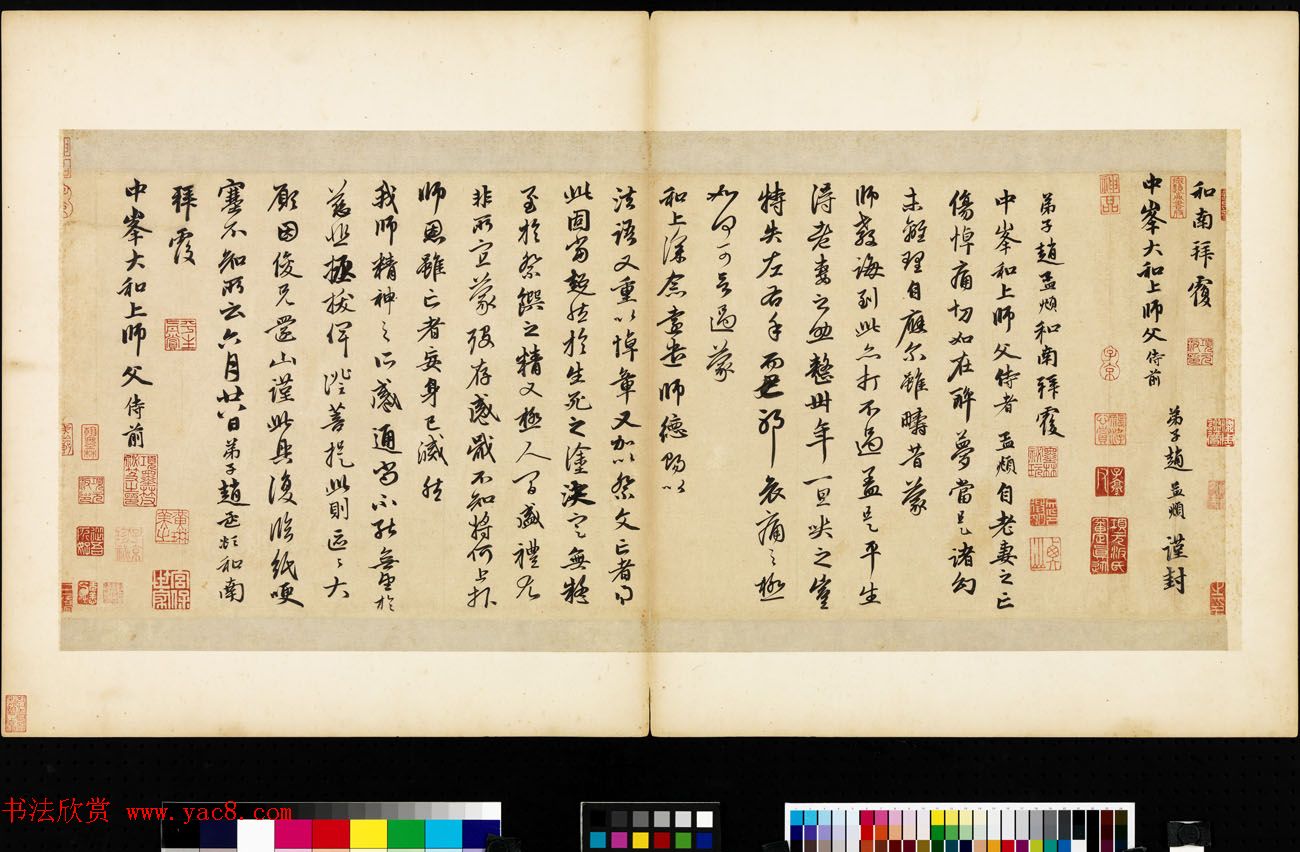 和南拜覆
中峯大和上師父侍前
弟子趙孟頫 謹封
弟子趙孟頫和南拜覆
中峯和上師父侍者孟頫自老妻之亡
傷悼痛切如在醉夢當是諸幻
未離理自應尒雖疇昔蒙
師教誨到此亦打不過蓋是平生
得老妻之助整卅年一旦哭之豈
特失左右手而已耶哀痛之極
如何可言過蒙
和上深念遠遣師德賜以
法語又重以悼章又加以祭文亡者得
此固當超然於生死之塗決定無疑
至於祭饌之精又極人間盛禮尤
非所宜蒙歿存感戢不知將何上報
師恩雖亡者妄身已滅然
我師精神之所感通尚不能無望於
慈悲拯拔俾證菩提此則區區大
願因俊兄還山謹此具覆臨紙哽
塞不知所云六月廿八日弟子趙孟頫和南
拜覆
中峯大和上師父侍前
神品
子京
书法欣赏 www.yac8.com